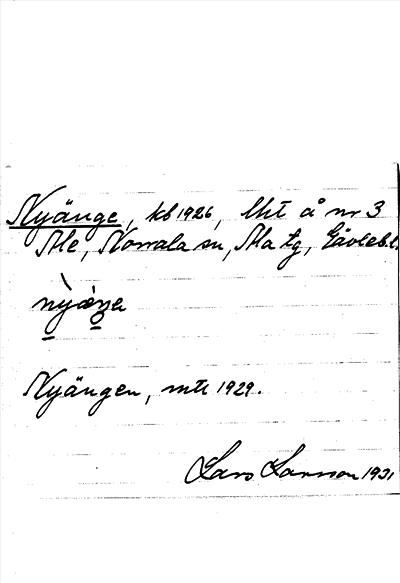 Nyänge, kb 1926, lht å nr 3
Ale, Norrala sn, Ala tg, Gävleb. l.
Nyängen, mtl 1929.
Lars Larsson 1931